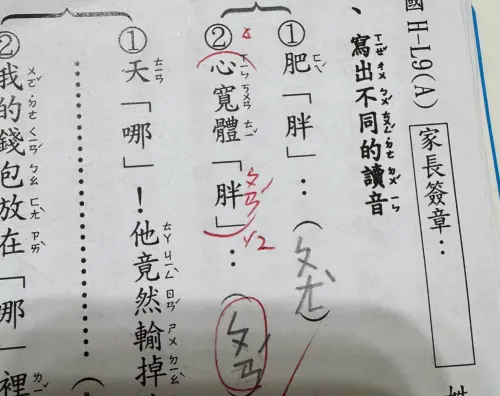 國 H-L9(A) 家長簽章：
姓
、寫出不同的讀音
①肥「胖」：(ㄆㄤˋ)
②心寬體「胖」：(ㄆㄢˊ
ㄆㄢˊ
√2
①天「哪」！他竟然輸掉
②我的錢包放在「哪」裡